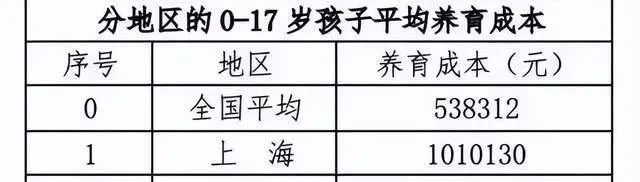 分地区的 0-17 岁孩子平均养育成本
序号 地区 养育成本（元）
0 全国平均 538312
1 上 海 1010130